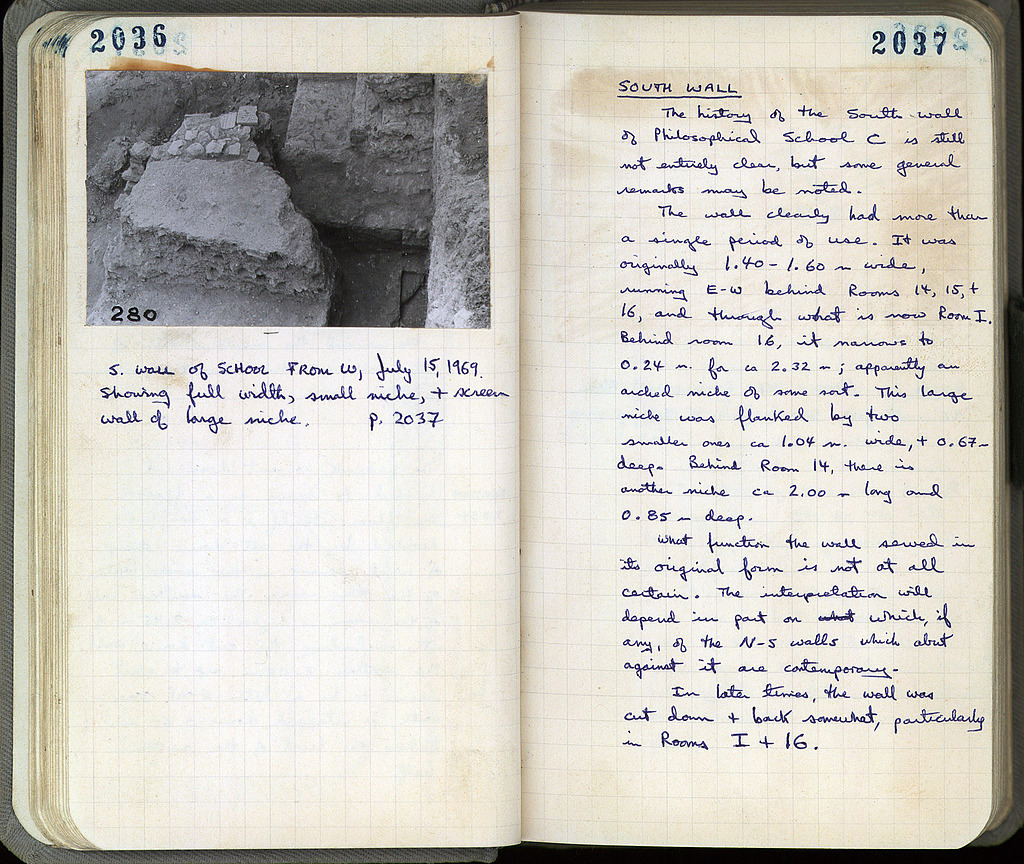 2036
280
S. wall of SCHOOL FROM W, July 15, 1969.
showing full width, small niche, + screen
wall of large niche. p. 2037
2037
SOUTH WALL
The history of the South wall
of Philosophical School C is still
not entirely clear, but some general
remarks may be noted.
The wall clearly had more than
a single period of use. It was
originally 1.40-1.60 m wide,
running E-W behind Rooms 14, 15, +
16, and through what is now Room I.
Behind room 16, it narrows to
0.24 m. for ca 2.32 m; apparently an
arched niche of some sort. This large
niche was flanked by two
smaller ones ca 1.04 m. wide, + 0.67-
deep. Behind Room 14, there is
another niche ca 2.00 m long and
0.85 m deep.
What function the wall served in
its original form is not at all
certain. The interpretation will
depend in part on what which, if
any, of the N-S walls which abut
against it are contemporary.
In later times, the wall was
cut down + back somewhat, particularly
in Rooms I + 16.